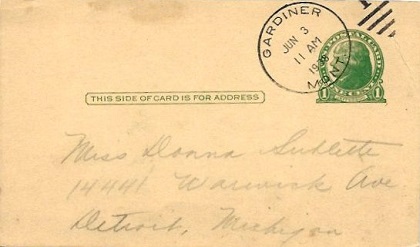 GARDINER
JUN 3
11 AM
MONT.
THIS SIDE OF CARD IS FOR ADDRESS
1 1
Miss Donna Sublette
14441 Warwick Ave
Detroit, Michigan